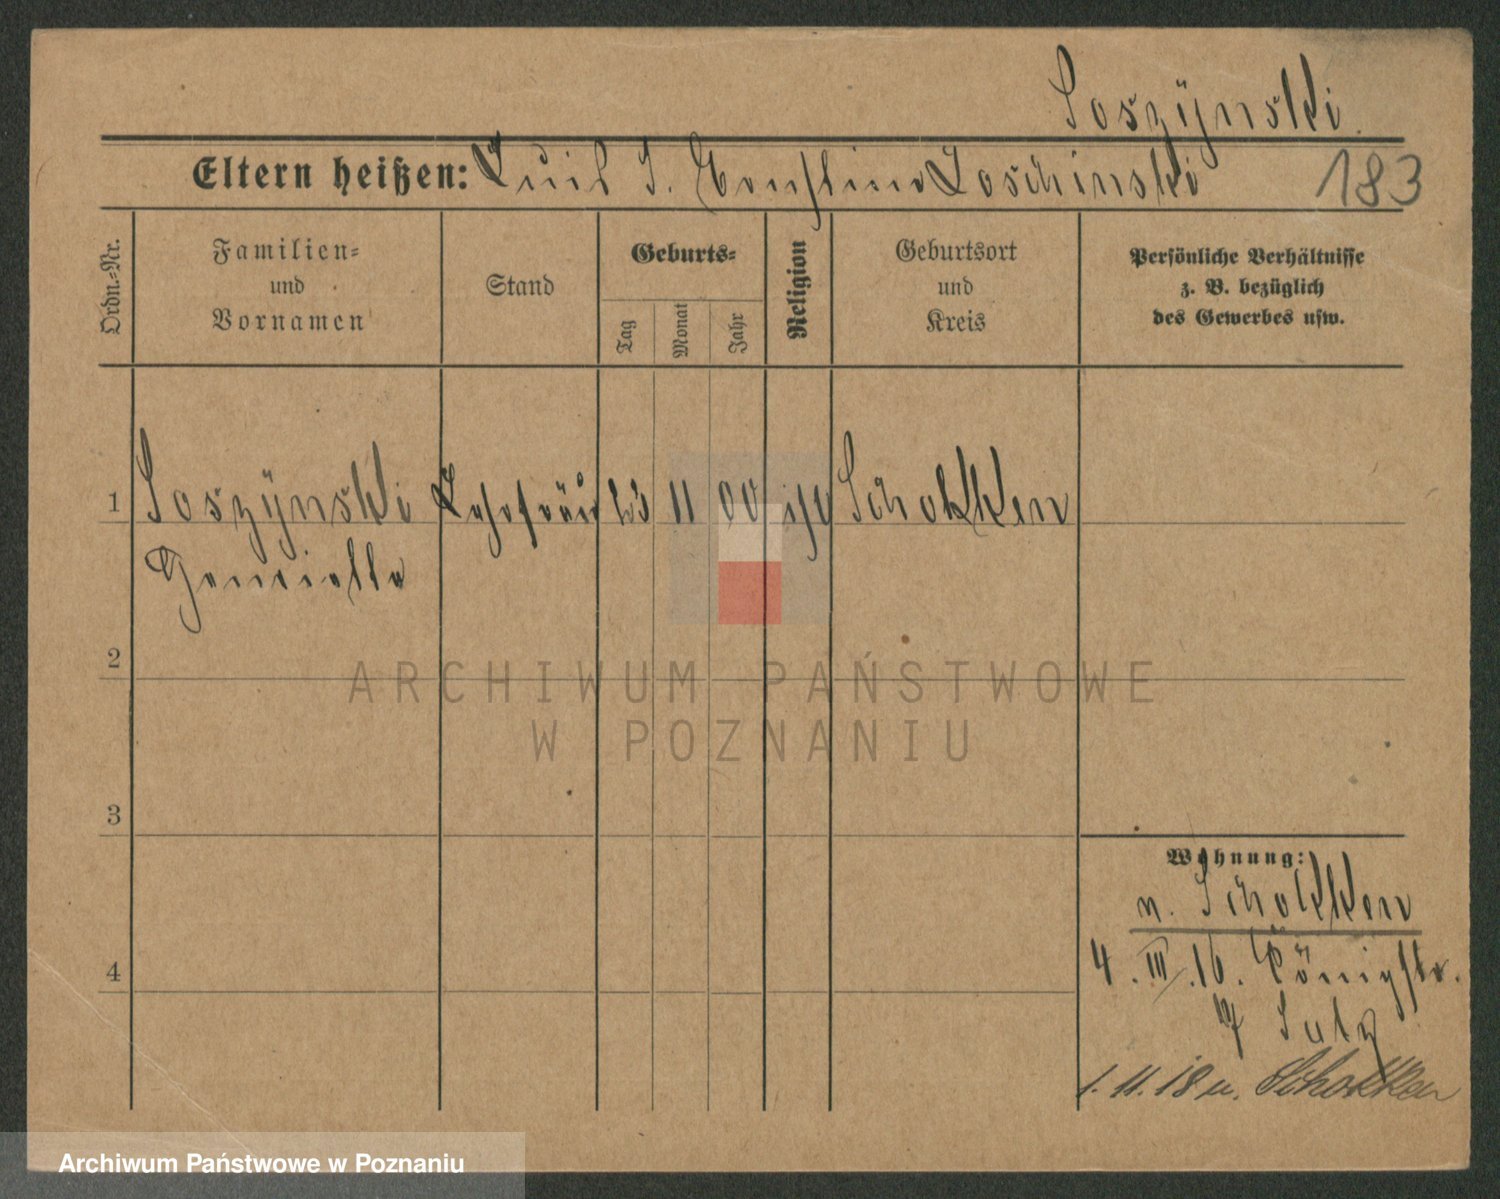 Soszÿnski
Eltern heißen: Emil S. Ernstine Loschinski 183
Ordn.-Nr.
Familien-
und
Vornamen
Stand
Geburts-
Tag
Monat
Jahr
Religion
Geburtsort
und
Kreis
Persönliche Verhältnisse
z. B. bezüglich
des Gewerbes usw.
1 Soszÿnski Lehrfräul 23 11 00 isr Schokken
2
3
4
Wohnung:
n. Schokken
4. III. 16. Königstr.
7
1. 11. 18 n. Schokken
ARCHIWUM PAŃSTWOWE
W POZNANIU
Archiwum Państwowe w Poznaniu